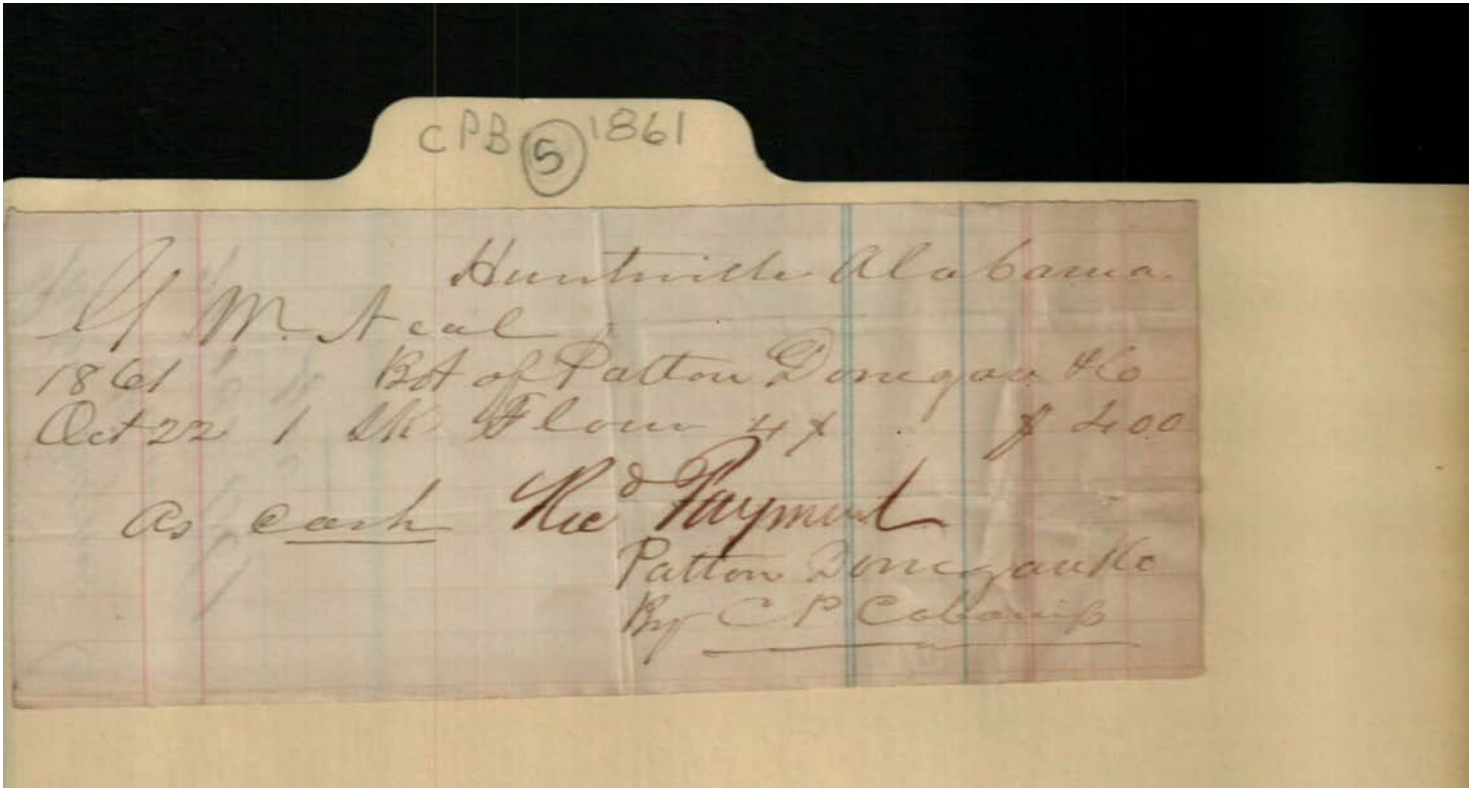 CPB 5 1861
Huntsville Alabama
M. Neal
1861 Bot of Patton Donegan & Co
Oct 22 1 Sk Flour 4 $ 4 00
As cash Recd Payment
Patton Donegan & Co
By C P Cabaniss